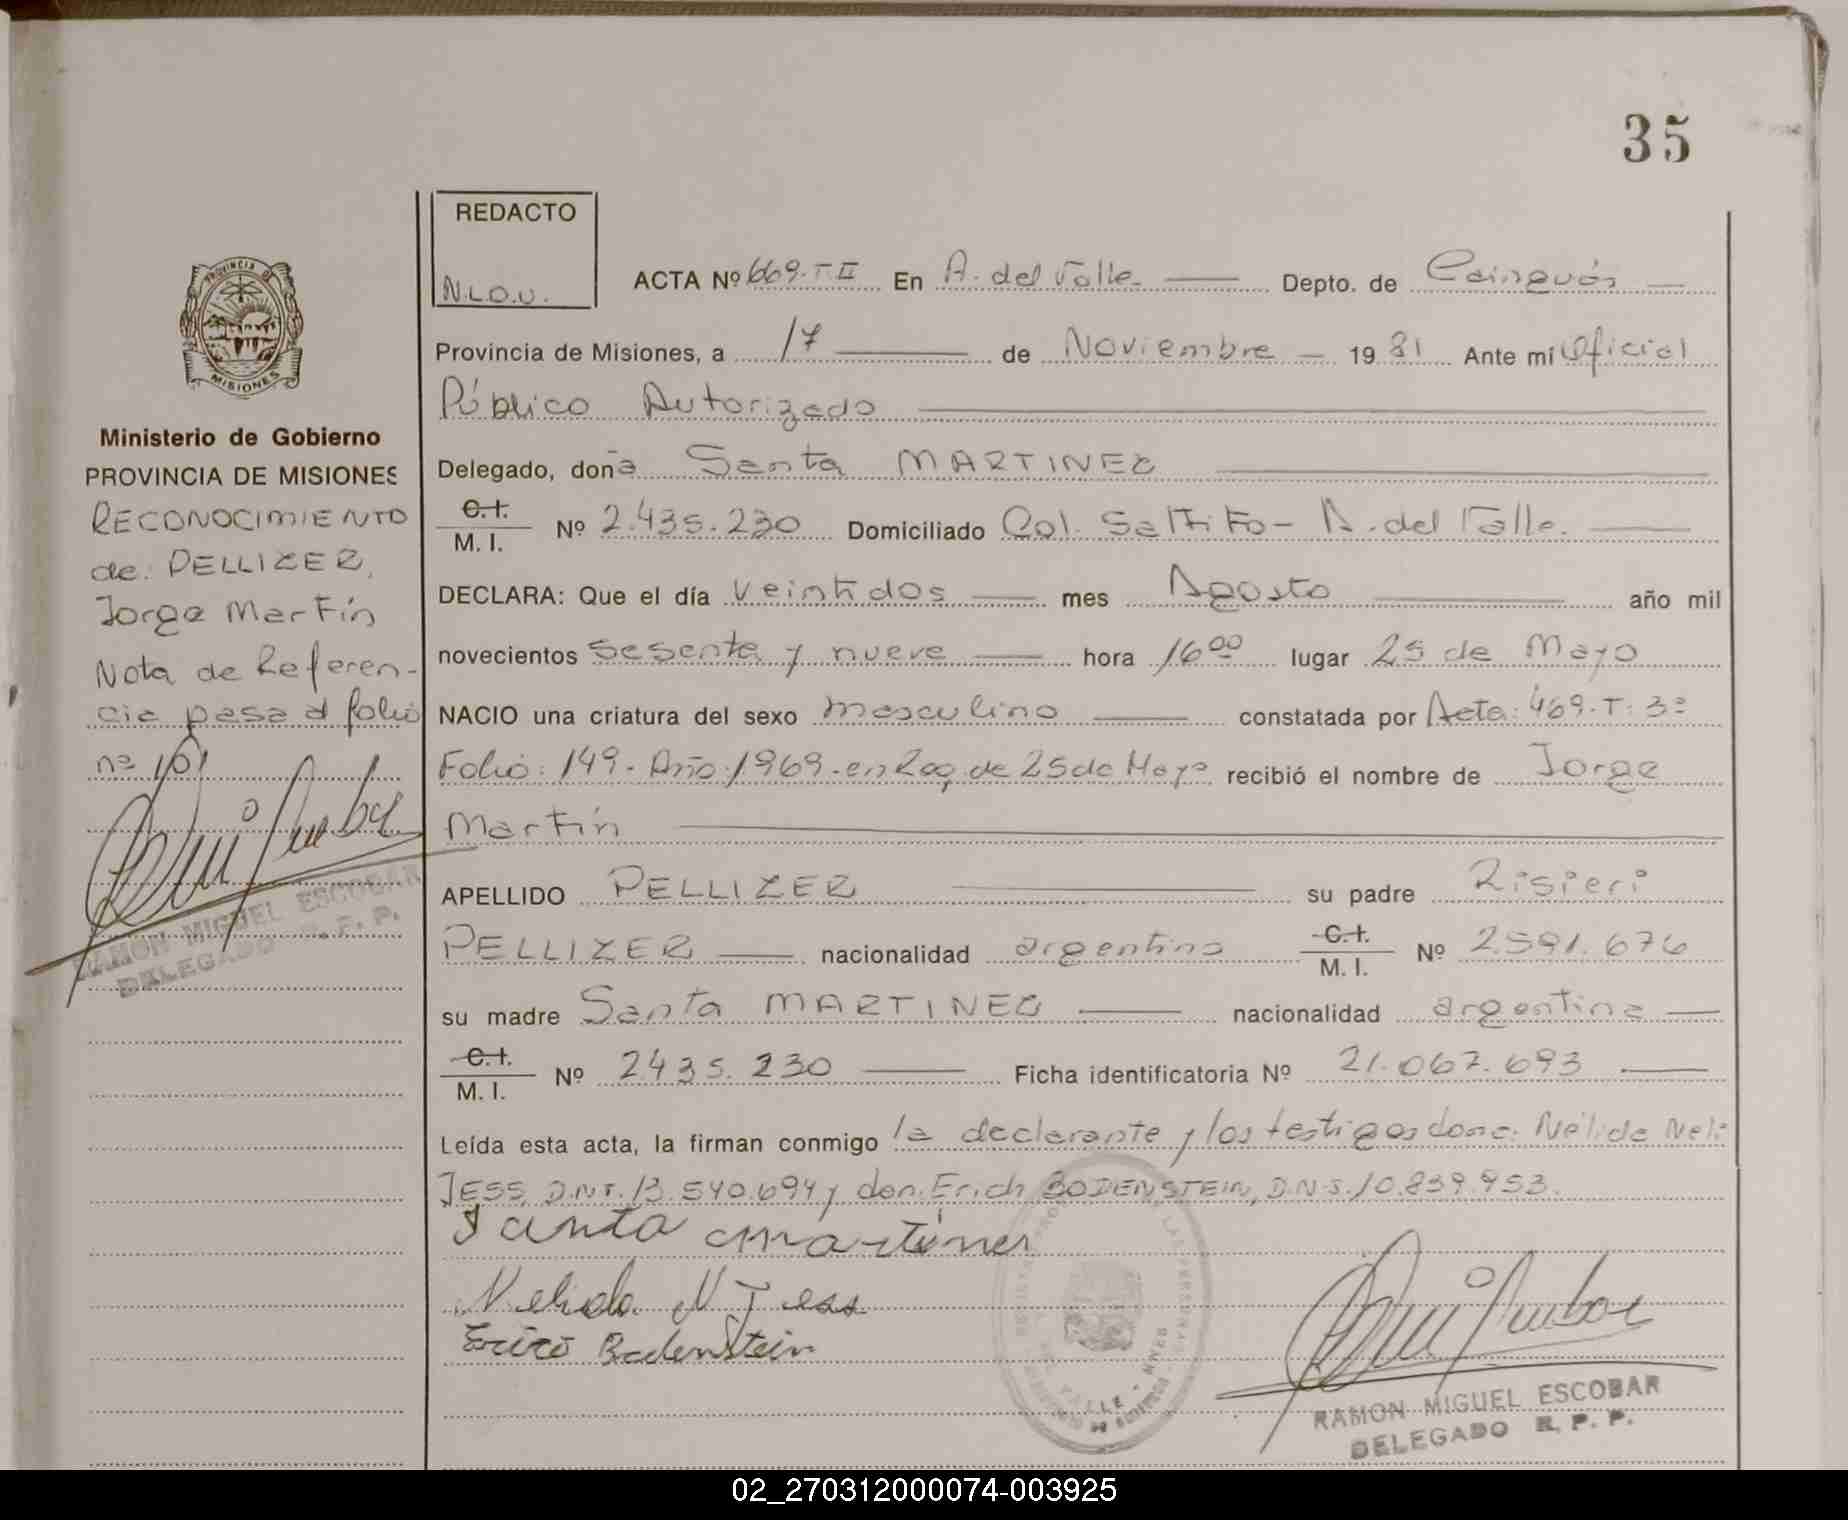 35
REDACTO
N.L.O.U.
ACTA Nº 669-T-II En A. del Valle Depto. de Cainguás
Provincia de Misiones, a 17 de Noviembre 1981 Ante mí Oficial
Público Autorizado
Delegado, doña Santa MARTINEZ
C.I. M.I. Nº 2.435.230 Domiciliado Col. Saltito - A. del Valle.
DECLARA: Que el día veintidos mes Agosto año mil
novecientos sesenta y nueve hora 16⁰⁰ lugar 25 de Mayo
NACIO una criatura del sexo masculino constatada por Acta: 469-T: 3º
Folio: 149- Año: 1969-en Reg. de 25 de Mayo recibió el nombre de Jorge
Martín
APELLIDO PELLIZER su padre Risieri
PELLIZER nacionalidad argentina C.I. M.I. Nº 2.591.676
su madre Santa MARTINEZ nacionalidad argentina
C.I. M.I. Nº 2435.230 Ficha identificatoria Nº 21.067.693
Leída esta acta, la firman conmigo la declarante y los testigos doña: Nélida Neli
JESS, D.N.I. 13.540.694 y don: Erich BODENSTEIN, D.N.I. 10.839.953.
Santa Martinez
Nelida N Jess
Erico Bodenstein
RAMON MIGUEL ESCOBAR
DELEGADO R. P. P.
PROVINCIA DE
MISIONES
Ministerio de Gobierno
PROVINCIA DE MISIONES
RECONOCIMIENTO
de: PELLIZER,
Jorge Martín
Nota de Referen-
cia pasa al folio
nº 101
RAMON MIGUEL ESCOBAR
DELEGADO R. P. P.
02_270312000074-003925